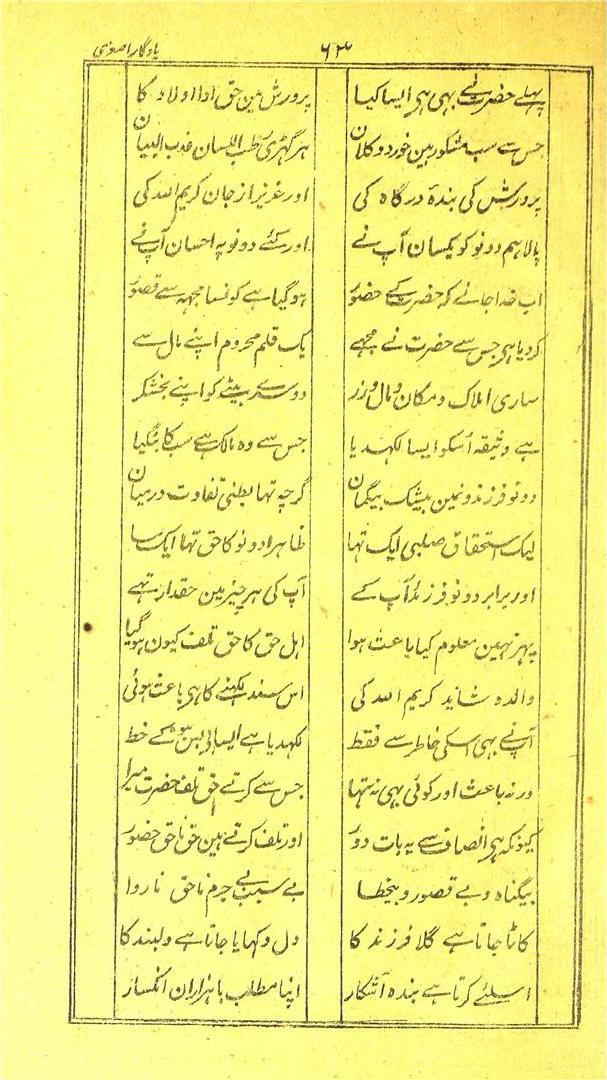 یادگار اصغری
۶۳
پہلے حضرت نے بہی ہر ایسا کیا پرورش مین حق ادا اولاد کا
جس سے سب مشکور ہین خورد و کلان ہر گہڑی رطب اللسان عذب البیان
پرورش کی بندۂ درگاہ کی اور عزیز از جان کریم اللہ کی
پالا ہم دونو کو یکسان آپ نے اور کئے دونو پہ احسان آپ نے
اب خدا جانے کہ حضرت کے حضور ہو گیا ہے کونسا مجہہ سے قصور
کر دیا ہر جس سے حضرت نے مجہے یک قلم محروم اپنے مال سے
ساری املاک و مکان و مال و زر دوسرے بیٹے کو اپنے بخشکر
ہے وثیقہ اُسکو ایسا لکہدیا جس سے وہ مالک ہے سب کا بنگیا
دونو فرزندونمین بیشک بیگمان گرچہ تہا بطنی تفاوت درمیان
لیک استحقاق صلبی ایک تہا ظاہرا دونو کا حق تہا ایک سا
اور برابر دونو فرزند آپ کے آپ کی ہر چیز مین حقدار تہے
پہر نہین معلوم کیا باعث ہوا اہل حق کا حق تلف کیون ہو گیا
والدہ شاید کریم اللہ کی اس سند لکہنے کا ہر باعث ہوئی
آپ نے بہی اسکی خاطر سے فقط لکہدیا ہے ایسا خط
ورنہ باعث اور کوئی بہی نہ تہا جس سے کرتے حق تلف حضرت میرا
کیونکہ ہر انصاف سے یہ بات دور اور تلف کرتے ہین حق ناحق حضور
بیگناہ و بے قصور و بیخطا بے سبب بے جرم ناحق ناروا
کاٹا جاتا ہے گلا فرزند کا دل دکہایا جاتا ہے دلبند کا
اسلئے کرتا ہے بندہ آشکار اپنا مطلب با ہزاران انکسار